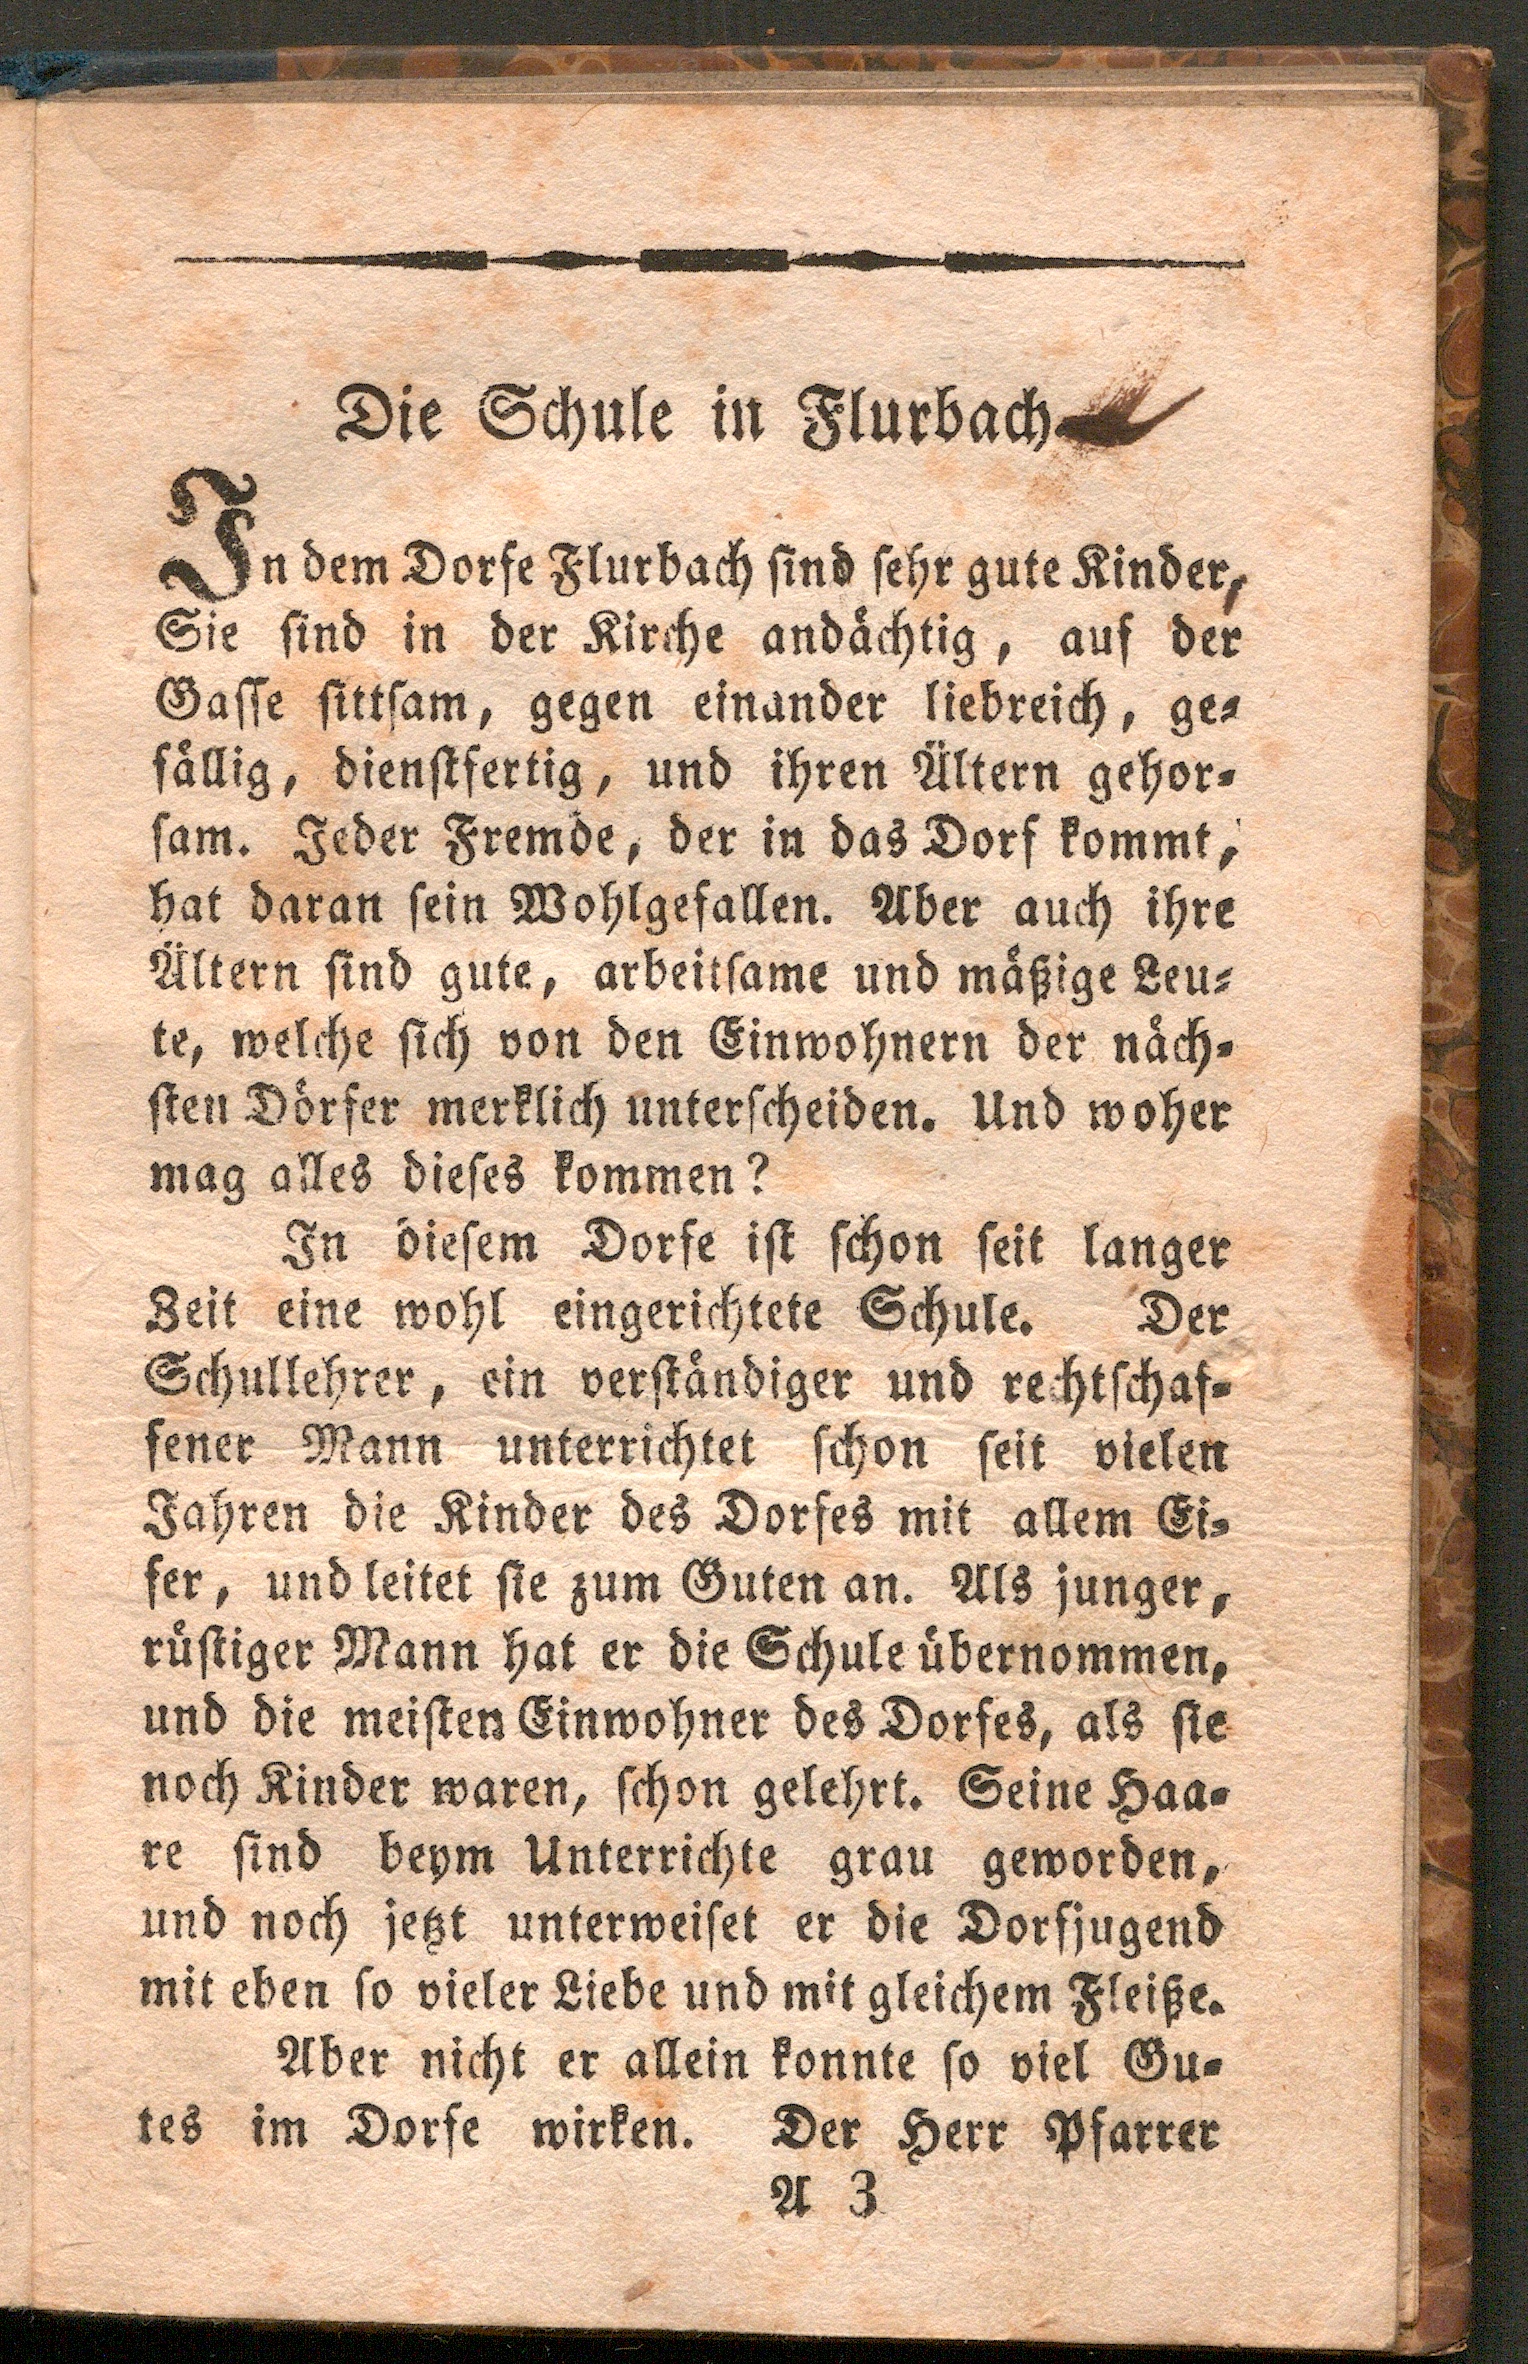 Die Schule in Flurbach.
In dem Dorfe Flurbach ſind ſehr gute Kinder,
Sie ſind in der Kirche andaͤchtig, auf der
Gaſſe ſittſam, gegen einander liebreich, ge⸗
faͤllig, dienſtfertig, und ihren Ältern gehor⸗
ſam. Jeder Fremde, der in das Dorf kommt,
hat daran ſein Wohlgefallen. Aber auch ihre
Ältern ſind gute, arbeitſame und maͤßige Leu⸗
te, welche ſich von den Einwohnern der naͤch⸗
ſten Doͤrfer merklich unterſcheiden. Und woher
mag alles dieſes kommen?
In dieſem Dorfe iſt ſchon ſeit langer
Zeit eine wohl eingerichtete Schule. Der
Schullehrer, ein verſtaͤndiger und rechtſchaf⸗
fener Mann unterrichtet ſchon ſeit vielen
Jahren die Kinder des Dorfes mit allem Ei⸗
fer, und leitet ſie zum Guten an. Als junger,
ruͤſtiger Mann hat er die Schule uͤbernommen,
und die meiſten Einwohner des Dorfes, als ſie
noch Kinder waren, ſchon gelehrt. Seine Haa⸗
re ſind beym Unterrichte grau geworden,
und noch jetzt unterweiſet er die Dorfjugend
mit eben ſo vieler Liebe und mit gleichem Fleiße.
Aber nicht er allein konnte ſo viel Gu⸗
tes im Dorfe wirken. Der Herr Pfarrer
A 3